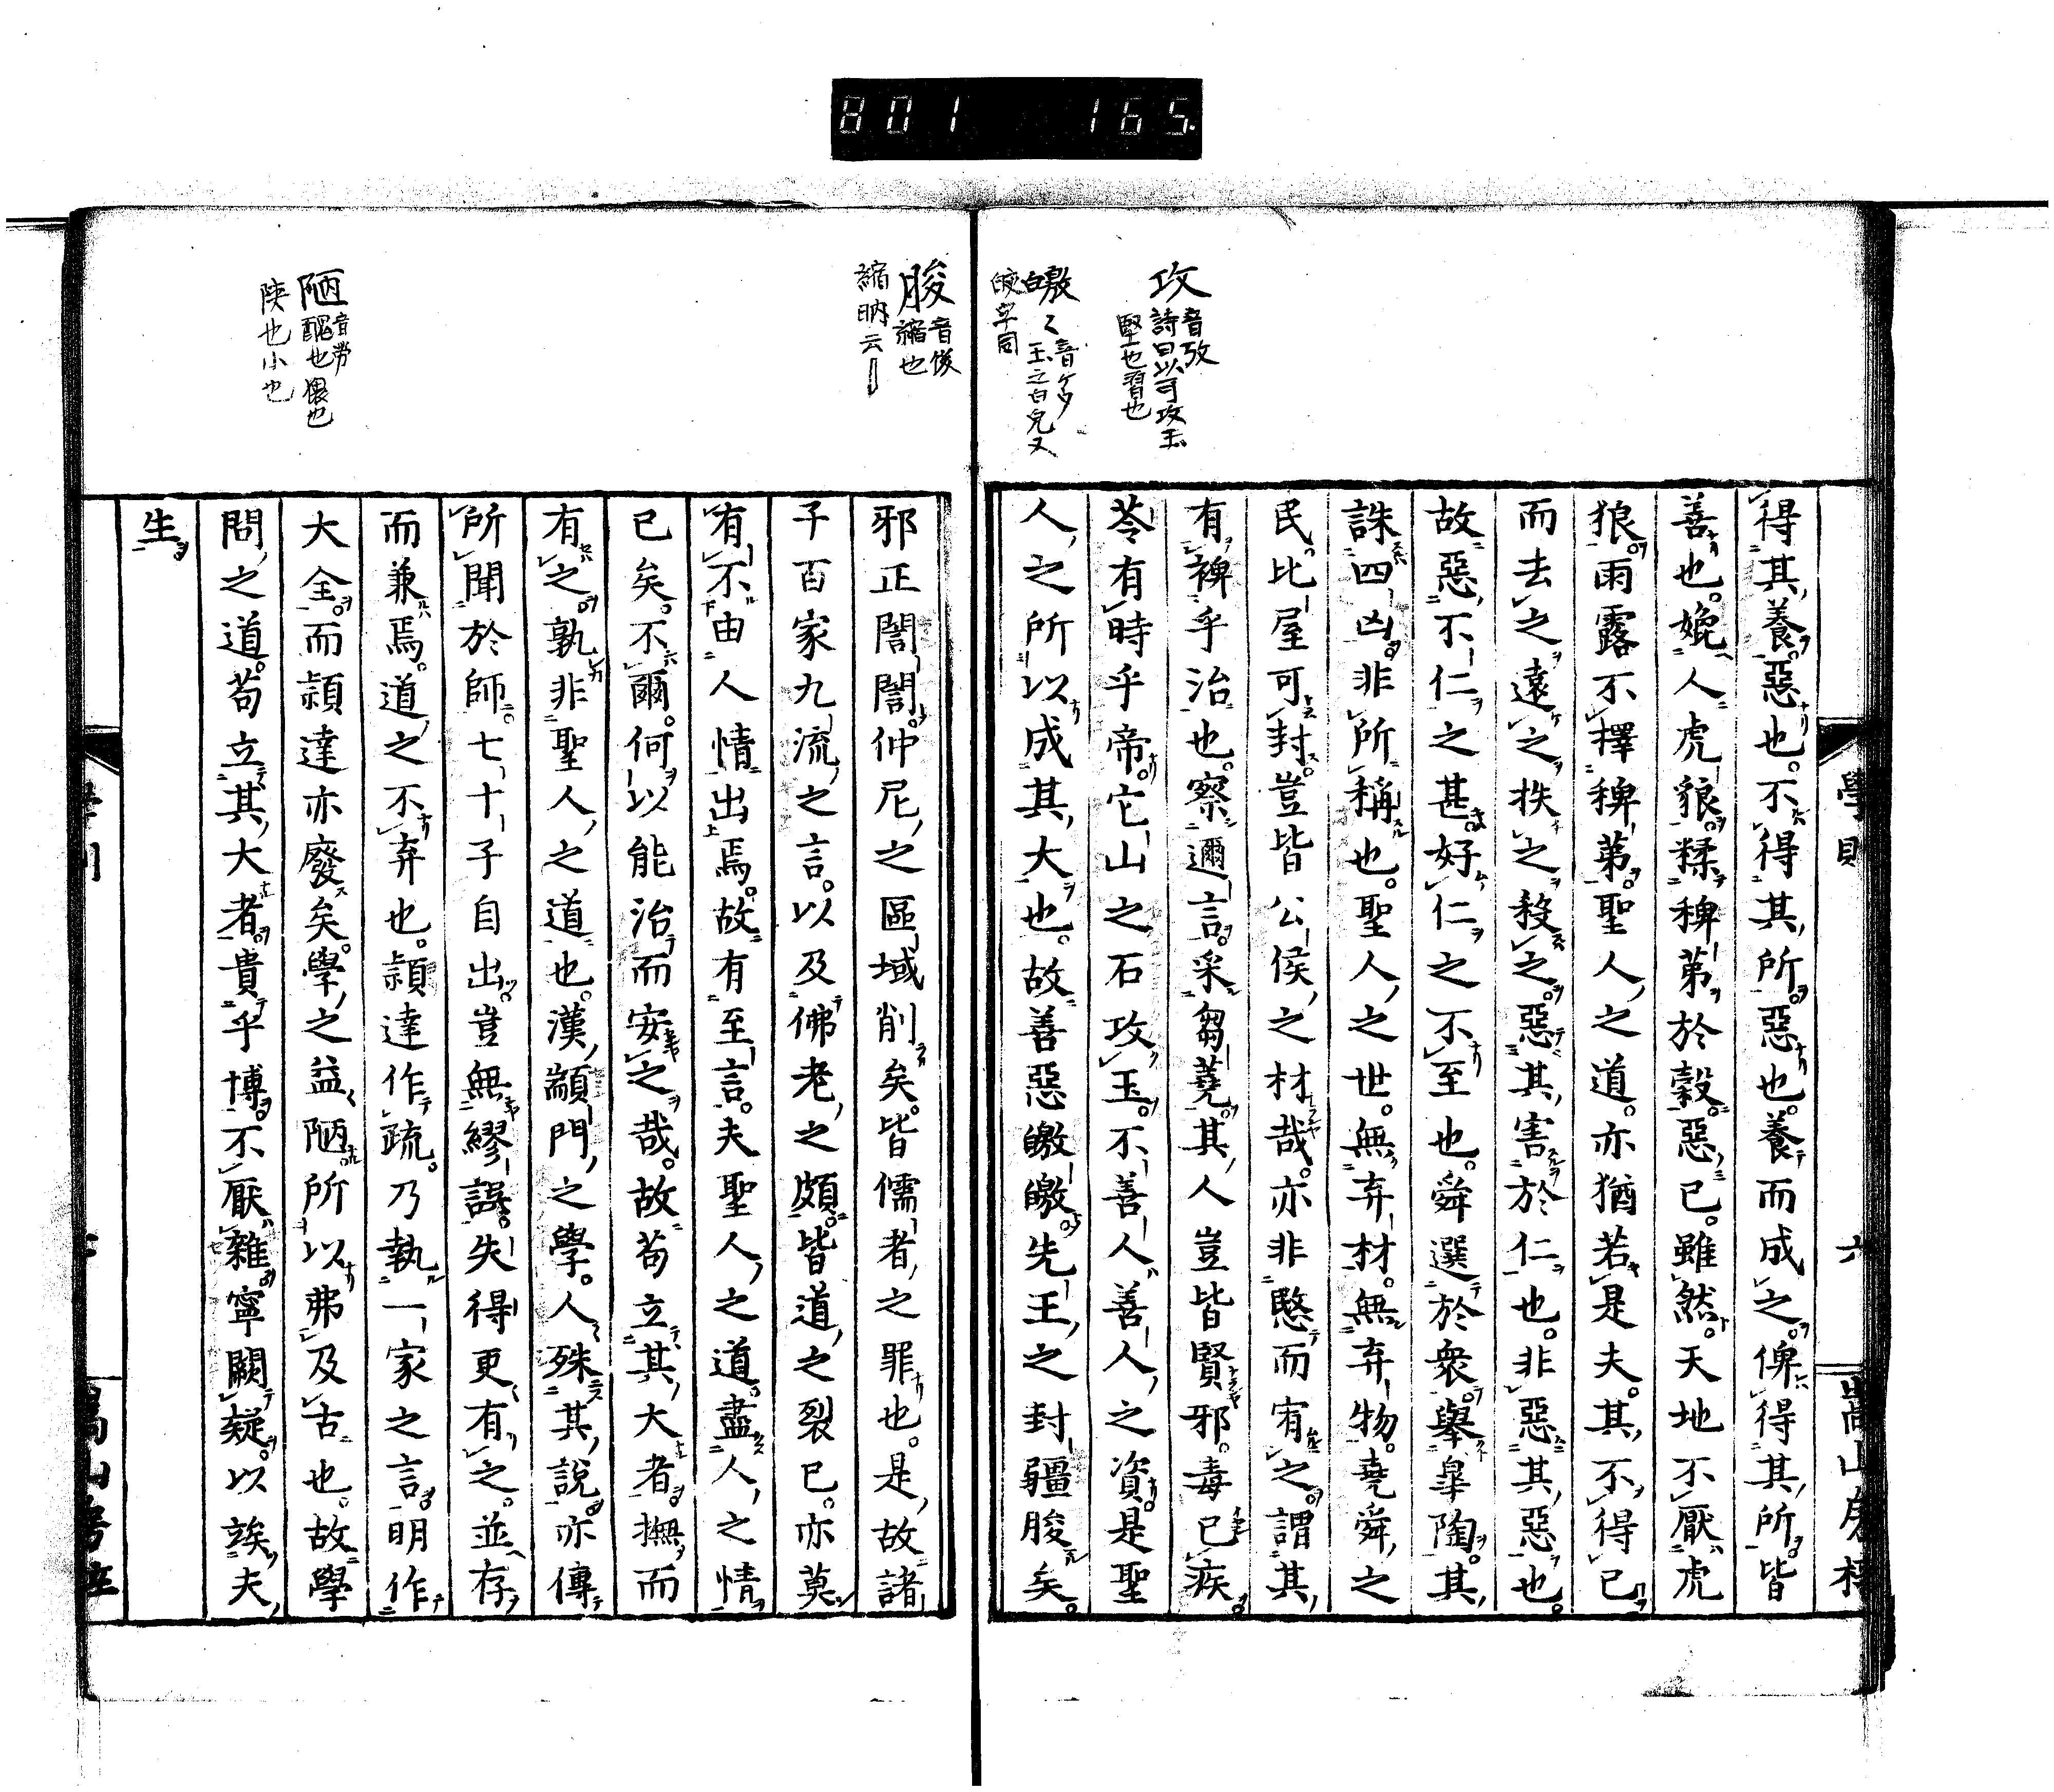 801 165
攻 音攷
詩曰以可攻玉
堅也習也
皦〻音
玉之白皃又
皎字同
學則 六
得其養惡也。不得其所惡也。養而成之。俾得其所皆
善也。娩人虎狼。糅稗苐於穀。惡已。雖然。天地不厭虎
狼。雨露不擇稗苐。聖人之道。亦猶若是夫。其不得已
而去之遠之。抶之殺之。惡其害於仁也。非惡其惡也。
故惡不仁之甚。好仁之不至也。舜選於衆。舉皐陶。其
誅四凶。非所稱也。聖人之世。無弃材。無弃物。堯舜之
民。比屋可封。豈皆公侯之材哉。亦非愍而宥之。謂其
有裨乎治也。察邇言。采芻蕘。其人豈皆賢邪。毒已疾
苓有時乎帝。它山之石攻玉。不善人善人之資。是聖
人之所以成其大也。故善惡皦皦。先王之封疆朘矣。
朘 音俊
縮也
縮朒云
陋 音勞
醜也猥也
陝也小也
邪正誾誾。仲尼之區域削矣。皆儒者之罪也。是故諸
子百家九流之言。以及佛老之頗。皆道之裂已。亦莫
有不由人情出焉。故有至言。夫聖人之道。盡人之情
已矣。不爾。何以能治而安之哉。故苟立其大者。撫而
有之。孰非聖人之道也。漢顓門之學。人殊其說。亦傳
所聞於師。七十子自出。豈無繆誤。失得更有之。並存
而兼焉。道之不弃也。頴達作疏。乃執一家之言。明作
大全。而頴達亦廢矣。學之益陋。所以弗及古也。故學
問之道。苟立其大者。貴乎博。不厭雜。寧闕疑。以竢夫
生。